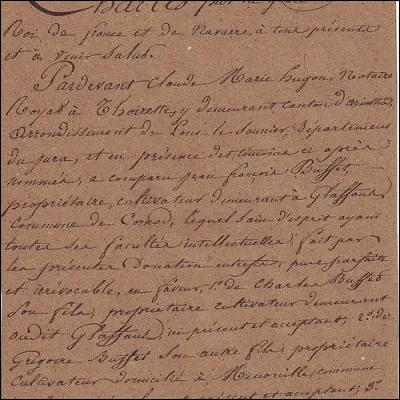 Charles par la
Roi de france et de Navarre, à tous présents
et à venir Salut.
Pardevant Claude Marie hugon, Notaire
Royal à Thoirette, y demeurant canton d'arinthod,
arrondissement de Lons le saunier, Département
du jura, et en présence des témoins ci après
nommés, a comparu jean françois Buffet,
propriétaire, cultivateur demeurant à Glaffaud
Commune de Cornod, lequel sain d'esprit ayant
toutes ses facultés intellectuelles, fait par
les présentes Donation entrevifs, pure, parfaite
et irrévocable, en faveur, 1.º de Charles Buffet
son fils, propriétaire cultivateur demeurant
audit Glaffaud, ici présent et acceptant; 2.º de
Grégoire Buffet son autre fils, propriétaire
cultivateur domicilié à commune
présent et acceptant; 3.º